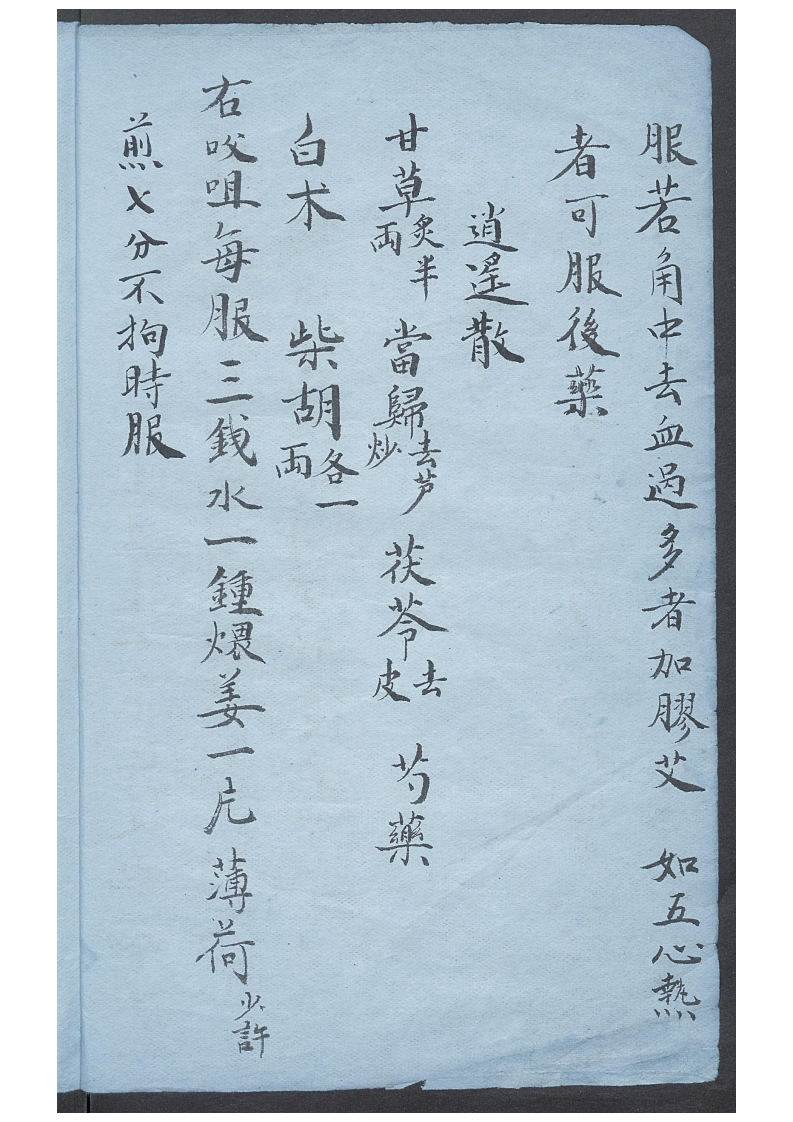 服若角中去血過多者加膠艾　如五心熱
者可服後藥
逍遙散
甘草炙半兩　當歸去芦炒　茯苓去皮　芍藥
白术　柴胡各一兩
右㕮咀每服三銭水一鍾煨姜一片薄荷少許
煎七分不拘時服